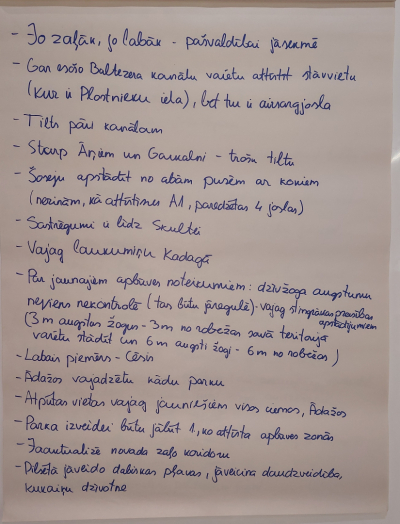 - Jo zaļāk, jo labāk - pašvaldībai jāsekmē
- Gar esošo Baltezera kanālu varētu attīstīt stāvvietu
(kur ir Plostnieku iela), bet tur ir aizsargjosla
- Tilts pāri kanālam
- Starp Āņiem un Gaukalni - trošu tilts
- Šoseju apstādīt no abām pusēm ar kokiem
(nezinām, kā attīstīsies A1, paredzētas 4 joslas)
- Sastrēgumi ir līdz Skultei
- Vajag laukumiņu Kadagā
- Par jaunajiem apbūves noteikumiem: dzīvžoga augstumu
neviens nekontrolē (tas būtu jāregulē). vajag stingrākas prasības
apstādījumiem
(3 m augstas žogus - 3m no robežas savā teritorijā
varētu stādīt un 6 m augsti žogi - 6m no robežas)
- Labais piemērs - Cēsis
- Ādažos vajadzētu kādu parku
- Atpūtas vietas vajag jauniešiem visos ciemos, Ādažos
- Parka izveidei būtu jābūt 1, ko attīsta apbūves zonās
- Jāaktualizē novada zaļo koridoru
- Pilsētā jāveido dabiskas pļavas, jāveicina daudzveidība,
kukaiņu dzīvotne